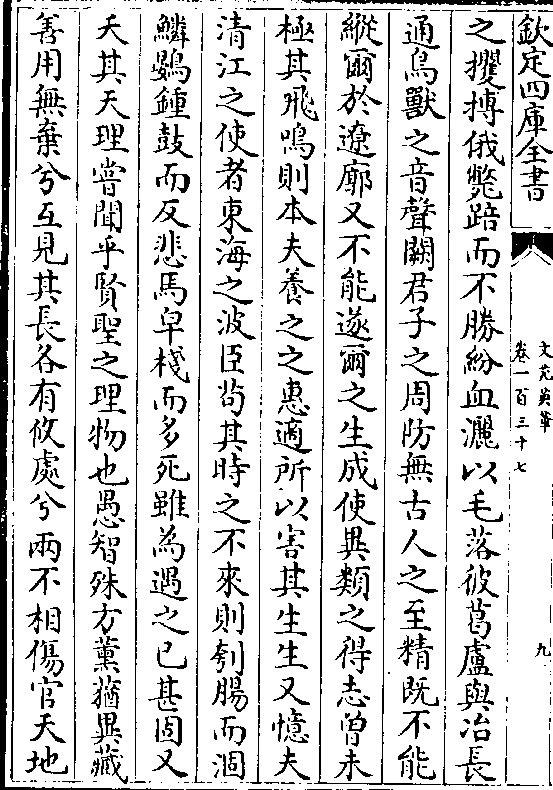 欽定四庫全書
文苑英華
卷一百三十七
九
之攫搏俄斃踣而不勝紛血灑以毛落彼葛盧與冶長
通鳥獸之音聲闕君子之周防無古人之至精既不能
縱爾於遼廓又不能遂爾之生成使異類之得志曾未
極其飛鳴則本夫養之之惠適所以害其生生又憶夫
清江之使者東海之波臣苟其時之不來則刳腸而涸
鱗鷃鍾鼓而反悲馬皁棧而多死雖為遇之已甚固又
夭其天理嘗聞乎賢聖之理物也愚智殊方薰蕕異藏
善用無棄兮互見其長各有攸處兮兩不相傷官天地